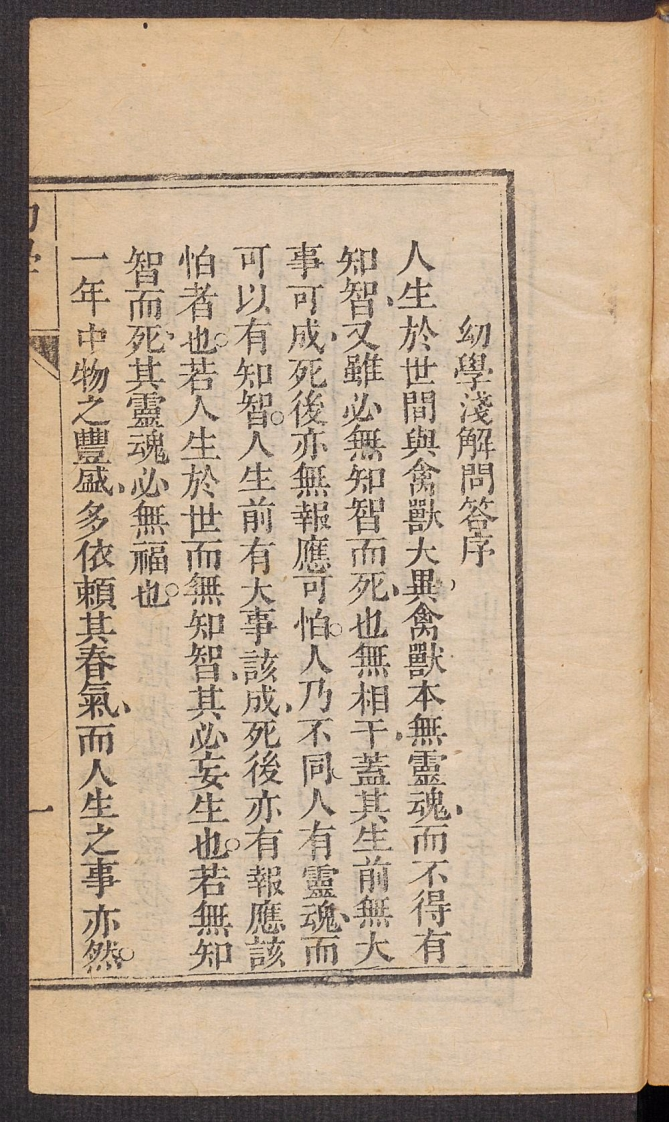 幼學淺解問答序
人生於世間與禽獸大異、禽獸本無靈魂、而不得有
知智、又雖必無知智而死、也無相干、蓋其生前無大
事可成、死後亦無報應可怕。人乃不同、人有靈魂、而
可以有知智。人生前有大事該成、死後亦有報應該
怕者也。若人生於世而無知智、其必妄生也。若無知
智而死、其靈魂必無福也。
一年中物之豐盛、多依賴其春氣、而人生之事亦然。
一